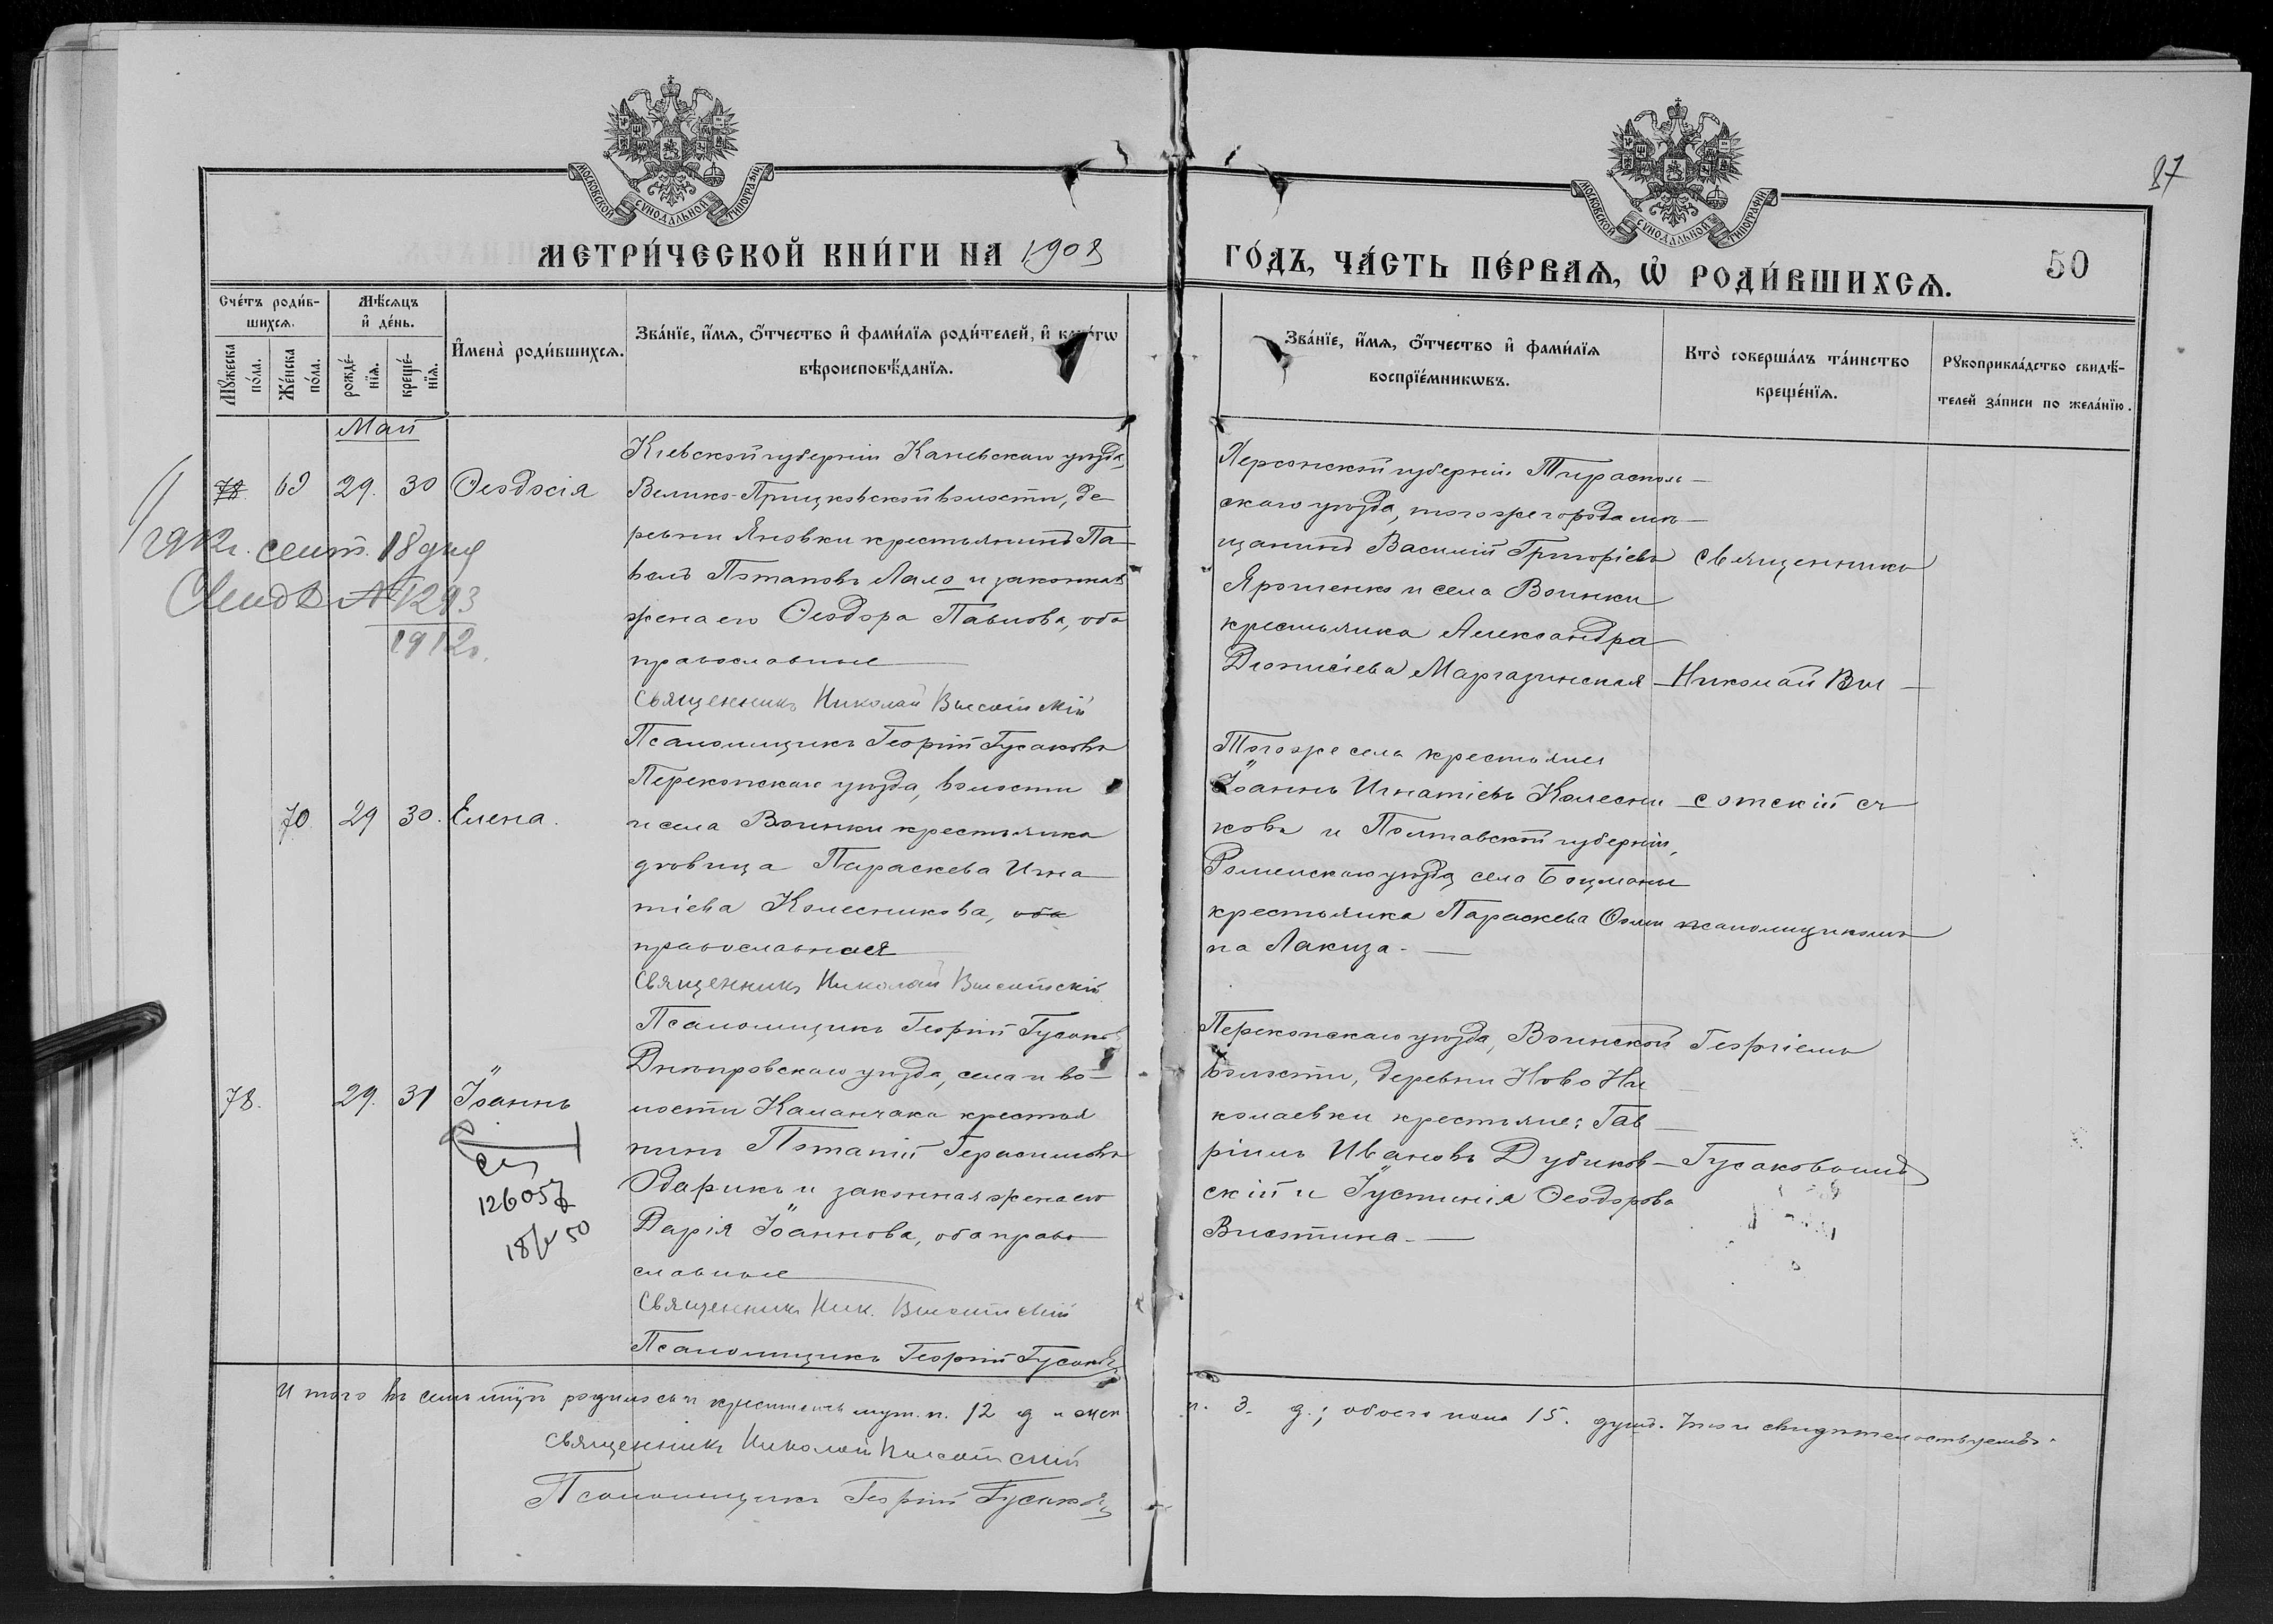 87
МОСКОВСКОЙ СУНОДАЛЬНОЙ ТИПОГРАФІИ
МОСКОВСКОЙ СУНОДАЛЬНОЙ ТИПОГРАФІИ
МЕТРИ́ЧЕСКОЙ КНИ́ГИ НА 1908
ГО́ДЪ, ЧА́СТЬ ПЕ́РВАѦ, Ѡ РОДИ́ВШИХСѦ.
50
Сче́тъ роди́в-
шихсѧ.
Мꙋ́жеска по́ла.
Же́нска по́ла.
Мѣ́сѧцъ
и҆ де́нь.
рожде́-
нїѧ.
креще́-
нїѧ.
И҆мена̀ роди́вшихсѧ.
Зва́нїе, и҆́мѧ, ѻ҆́тчество и҆ фами́лїѧ роди́телей, и҆ како́гѡ
вѣроисповѣ́данїѧ.
Зва́нїе, и҆́мѧ, ѻ҆́тчество и҆ фами́лїѧ
воспрїе́мникѡвъ.
Кто̀ соверша́лъ та́инство
креще́нїѧ.
Рꙋкоприкла́дство свидѣ́-
телей за́писи по жела́нїю.
Май
78.
69
29.
30
Ѳеодосія
Кіевской губерніи Каневскаго уѣзда,
Велико-Прицковской волости, де-
ревни Яновки крестьянинъ Па-
велъ Потаповъ Лало и законная
жена его Ѳеодора Павлова, оба
православные
Священникъ Николай Высотскій
Псаломщикъ Георгій Гусаковъ
Херсонской губерніи Тирасполь-
скаго уѣзда, того же города мѣ-
щанинъ Василій Григорьевъ
Ярошенко и села Воинки
крестьянка Александра
Діонисіева Маргазинская
1912г. сент. 18 дня
Свид. № 1293
1912г.
70.
29
30.
Елена.
Перекопскаго уѣзда, волости
и села Воинки крестьянка
дѣвица Параскева Игна
тіева Колесникова, оба
православная
Священникъ Николай Высотскій
Псаломщикъ Георгій Гусаковъ
Того же села крестьяне
Іоаннъ Игнатіевъ Колесни
ковъ и Полтавской губерніи,
Роменскаго уѣзда села Боцманы
крестьянка Параскева Ѳоми
на Лакиза.
78.
29.
31
Іоаннъ
126057
18/V 50
Днѣпровскаго уѣзда, села и во-
лости Каланчака крестья
нинъ Потапій Герасимовъ
Одарикъ и законная жена его
Дарія Іоаннова, оба право
славные
Священникъ Ник. Высотскій
Псаломщикъ Георгій Гусаковъ
Перекопскаго уѣзда, Воинской
волости, деревни Ново Ни
колаевки крестьяне: Гав
ріилъ Ивановъ Дубиков-
скій и Іустинія Ѳеодорова
Висотина.
Священникъ
Николай Вы-
сотскій съ
псаломщикомъ
Георгіемъ
Гусаковымъ
И того въ семъ м-цѣ родилось и крестилось муж. п. 12 д и жен
п. 3. д.; обоего пола 15. душъ. Что и свидѣтельствуемъ.
Священникъ Николай Высотскій
Псаломщикъ Георгій Гусаковъ